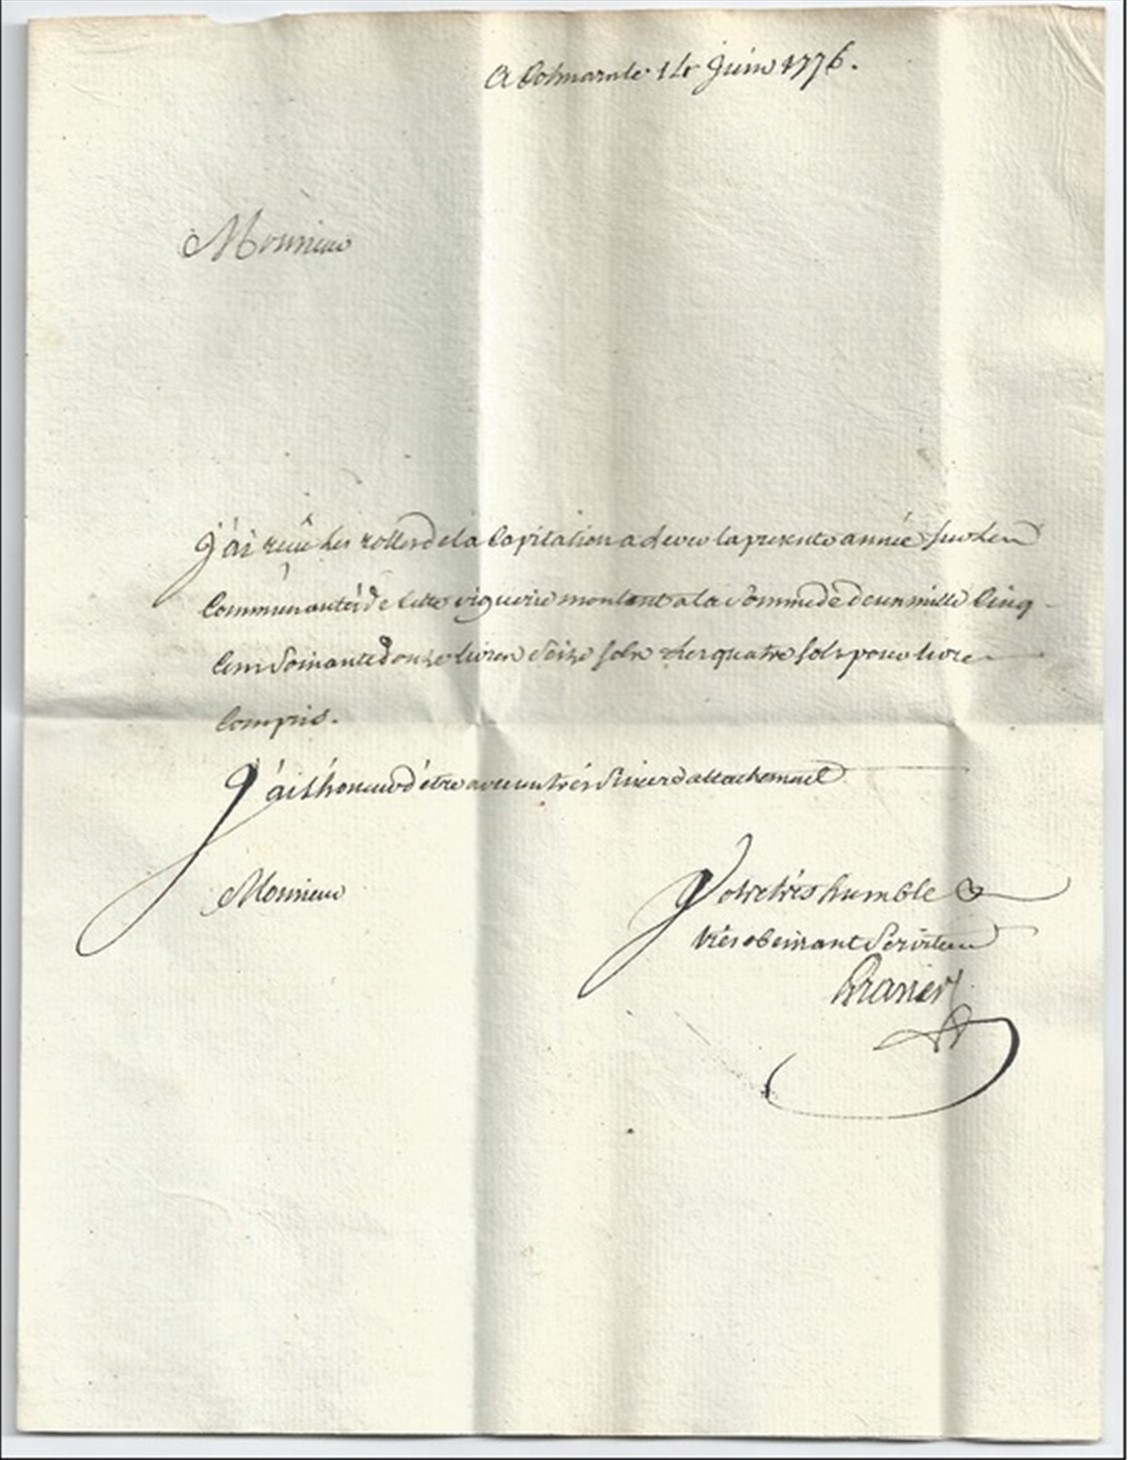 A Colmars le 14 Juin 1776.
Monsieur
J'ai reçû les rolles de la Capitation a lever la presente année sur les
Communautés de cette viguerie montant a la Somme de deux mille Cinq
Cens Soixante douze livres Seize sols les quatre sols pour livre
Compris.
J'ai l'honneur d'être avec un trés Sincere attachement
Monsieur
Votre trés humble &
trés obeissant Serviteur